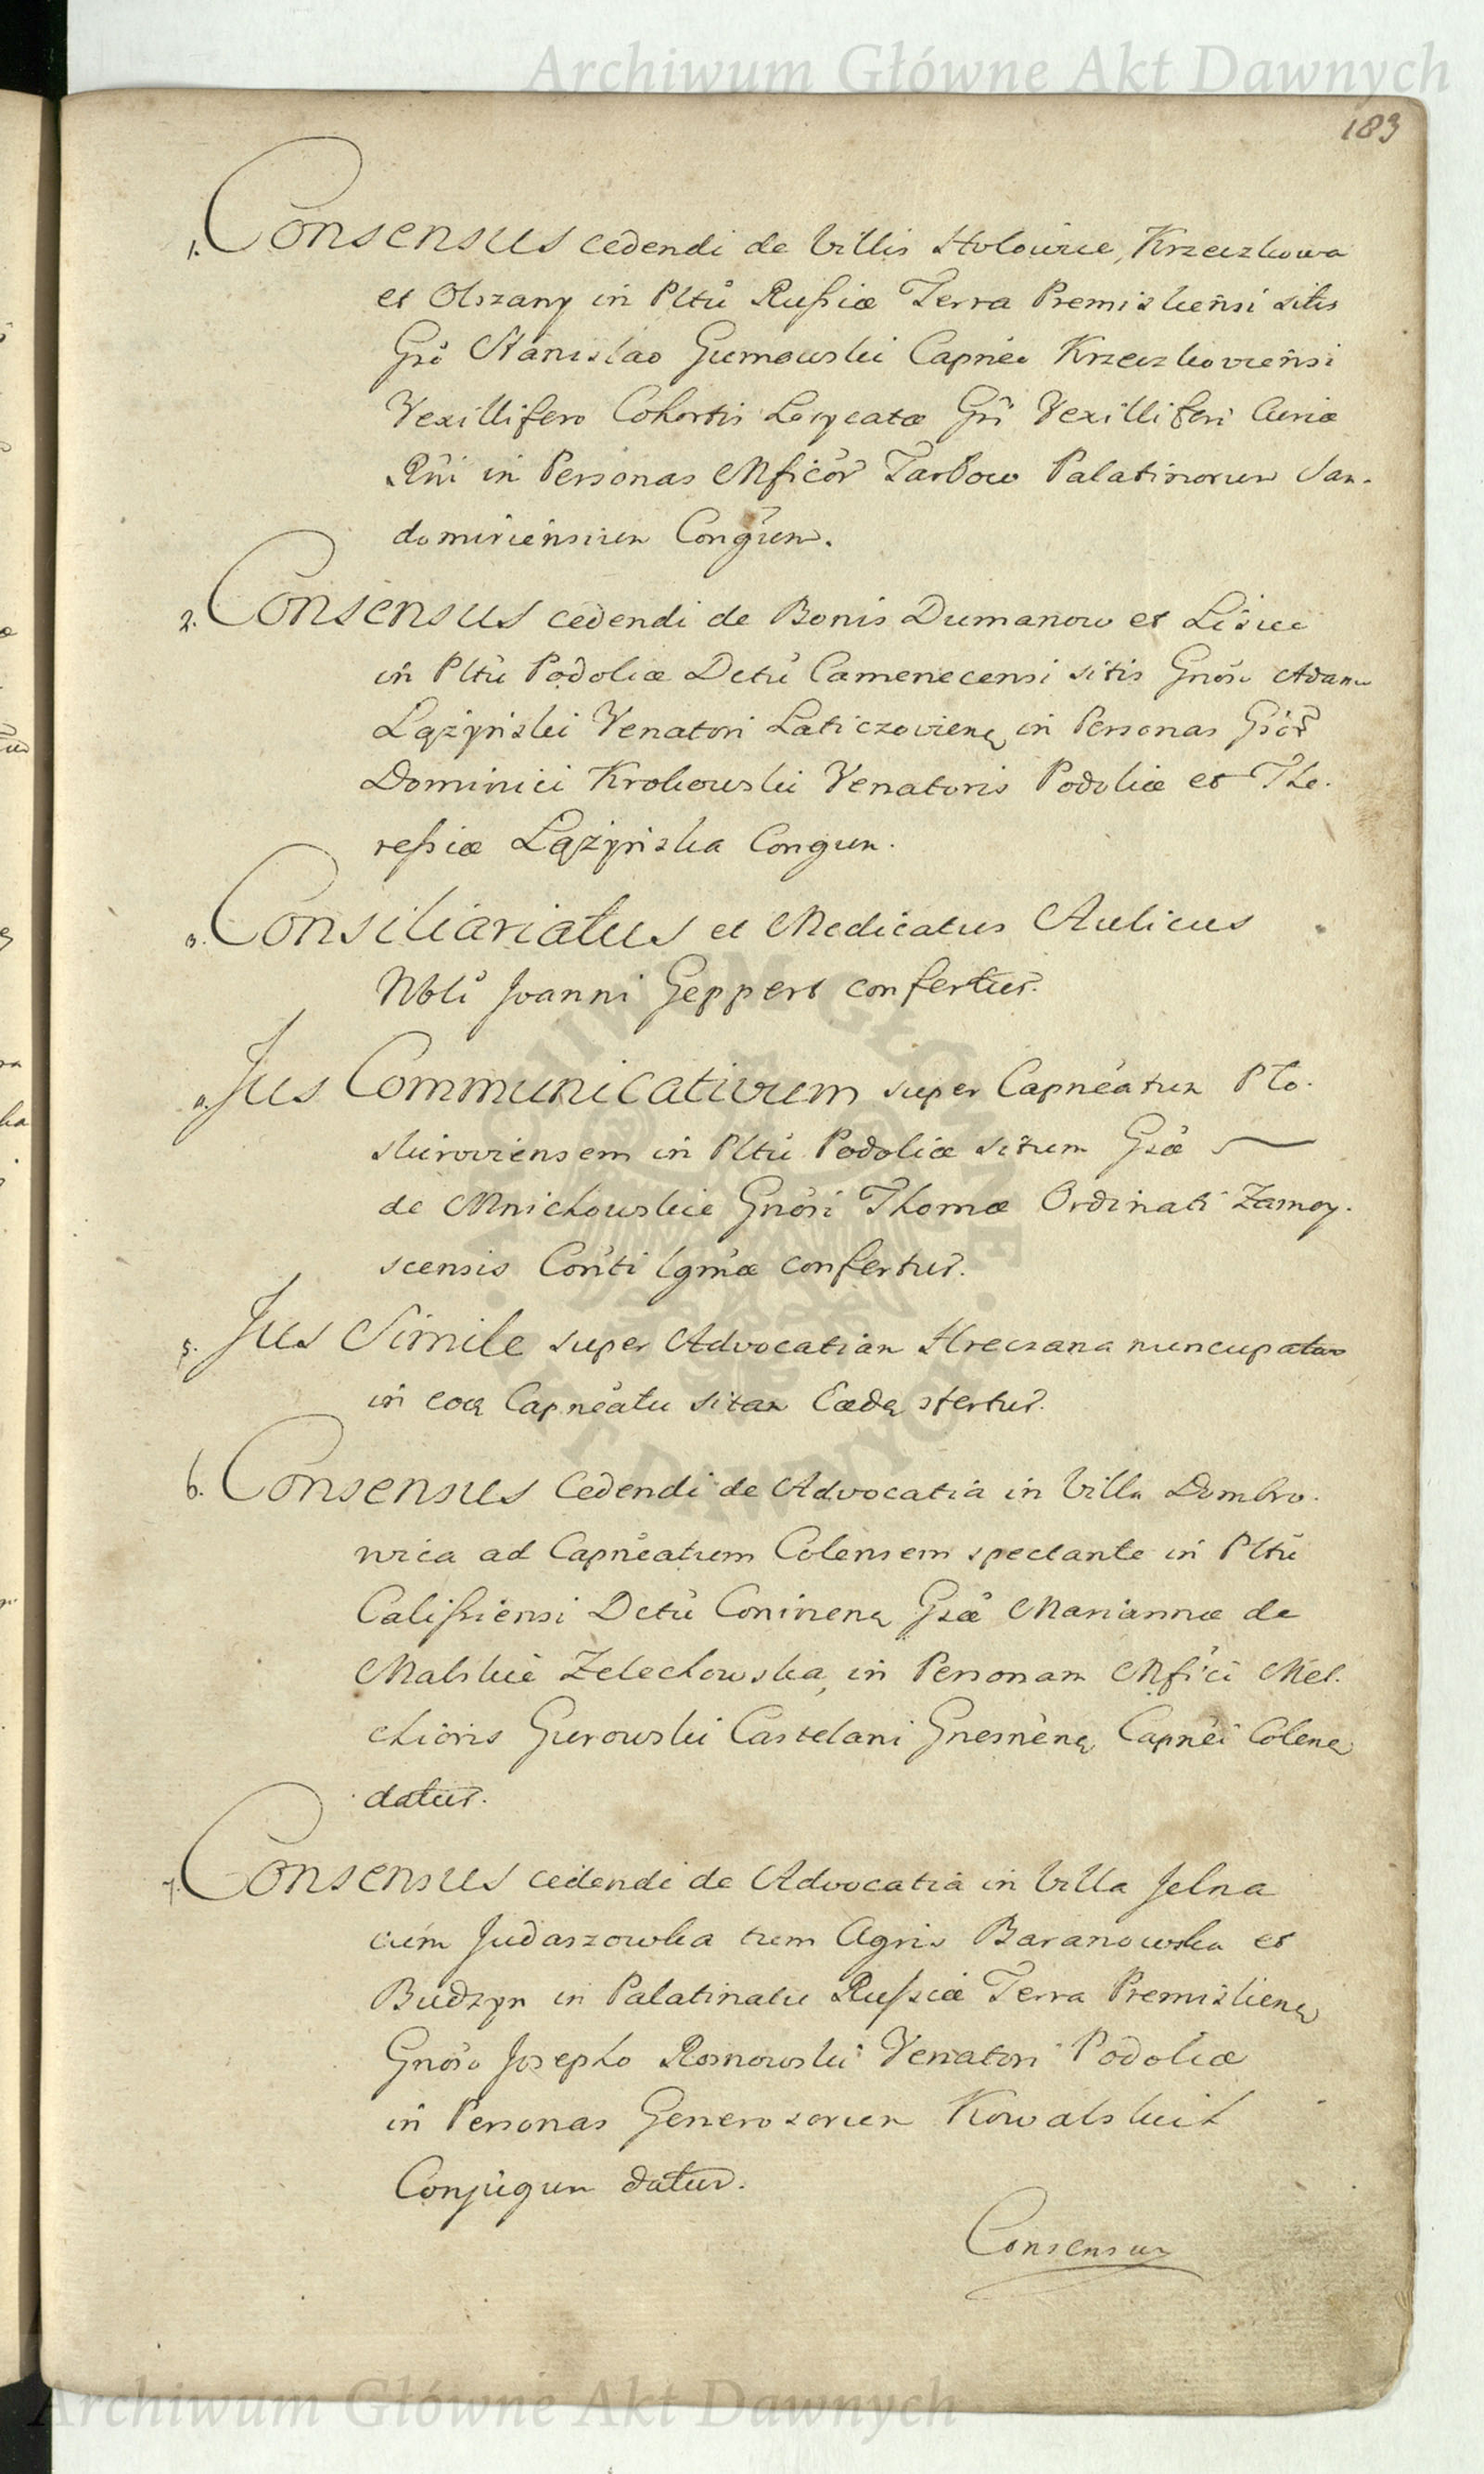 Archiwum Główne Akt Dawnych
183
1. Consensus cedendi de Villis Holowice, Krzeczkowa
et Olszany in Pltũ Russiæ Terra Premislieñsi sitis
Gsõ Stanislao Gumowski Capneo Krzeczkovieñsi
Vexillifero Cohortis Loricatæ Gsi Vexilliferi Curiæ
Rñi in Personas Mficor Tarłow Palatinorum San-
domiriensium Congũm.
2. Consensus cedendi de Bonis Dumanow et Lisiec
in Pltũ Podoliæ Dctũ Camenecensi sitis Gnoso Adamo
Lążyński Venatori Laticzoviens in Personas Gsor
Dominici Krokowski Venatoris Podoliæ et The-
ressiæ Lążyńska Congum.
3. Consiliariatus et Medicatus Aulicus
Nbli Joanni Geppert confertur.
4. Jus Communicativum super Capneatum Plo-
skiroviensem in Pltũ Podoliæ situm Gsæ
de Mnichowskie Gnosi Thomæ Ordinati Zamoy-
scensis Conti Lgmæ confertur.
5. Jus Simile super Advocatiam Hreczana nuncupatam
in eoq Capneatu sitam Eædq sfertur.
6. Consensus Cedendi de Advocatia in Villa Dombro-
wica ad Capneatum Colensem spectante in Pltũ
Calissiensi Dctũ Coninens Gsæ Mariannæ de
Malskie Zelechowska, in Personam Mfici Mel-
chioris Gurowski Castelani Gnesnens Capnei Colens
datur.
7. Consensus cedendi de Advocatia in Villa Jelna
cum Judaszowka tum Agris Baranowska et
Budzyn in Palatinatu Russiæ Terra Premisliens
Gnoso Josepho Rosnowski Venatori Podoliæ
in Personas Generosorum Kowalskich
Conjugum datur.
Consensus
Archiwum Główne Akt Dawnych